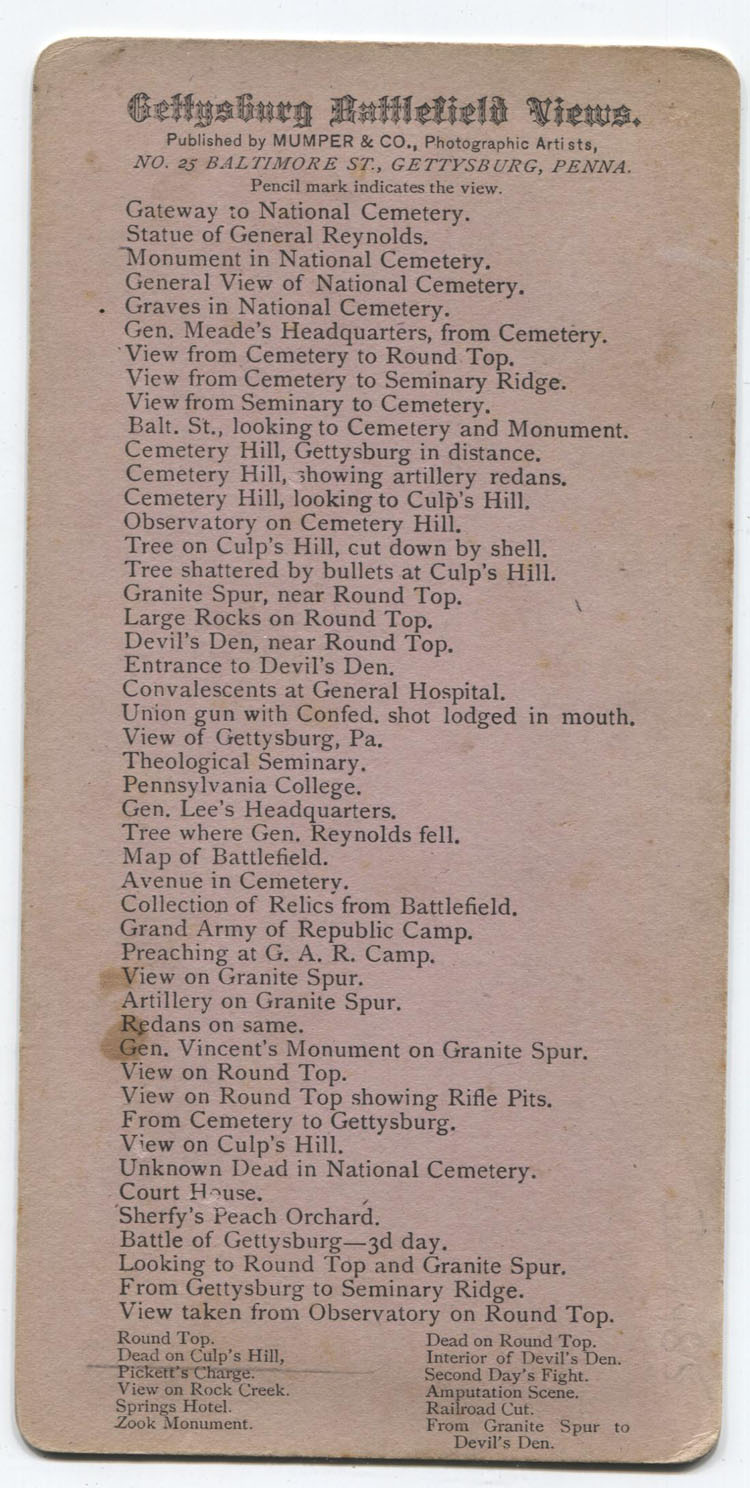 Gettysburg Battlefield Views.
Published by MUMPER & CO., Photographic Artists,
NO. 25 BALTIMORE ST., GETTYSBURG, PENNA.
Pencil mark indicates the view.
Gateway to National Cemetery.
Statue of General Reynolds.
Monument in National Cemetery.
General View of National Cemetery.
Graves in National Cemetery.
Gen. Meade's Headquarters, from Cemetery.
View from Cemetery to Round Top.
View from Cemetery to Seminary Ridge.
View from Seminary to Cemetery.
Balt. St., looking to Cemetery and Monument.
Cemetery Hill, Gettysburg in distance.
Cemetery Hill, showing artillery redans.
Cemetery Hill, looking to Culp's Hill.
Observatory on Cemetery Hill.
Tree on Culp's Hill, cut down by shell.
Tree shattered by bullets at Culp's Hill.
Granite Spur, near Round Top.
Large Rocks on Round Top.
Devil's Den, near Round Top.
Entrance to Devil's Den.
Convalescents at General Hospital.
Union gun with Confed. shot lodged in mouth.
View of Gettysburg, Pa.
Theological Seminary.
Pennsylvania College.
Gen. Lee's Headquarters.
Tree where Gen. Reynolds fell.
Map of Battlefield.
Avenue in Cemetery.
Collection of Relics from Battlefield.
Grand Army of Republic Camp.
Preaching at G. A. R. Camp.
View on Granite Spur.
Artillery on Granite Spur.
Redans on same.
Gen. Vincent's Monument on Granite Spur.
View on Round Top.
View on Round Top showing Rifle Pits.
From Cemetery to Gettysburg.
View on Culp's Hill.
Unknown Dead in National Cemetery.
Court House.
Sherfy's Peach Orchard.
Battle of Gettysburg—3d day.
Looking to Round Top and Granite Spur.
From Gettysburg to Seminary Ridge.
View taken from Observatory on Round Top.
Round Top.
Dead on Culp's Hill,
Pickett's Charge.
View on Rock Creek.
Springs Hotel.
Zook Monument.
Dead on Round Top.
Interior of Devil's Den.
Second Day's Fight.
Amputation Scene.
Railroad Cut.
From Granite Spur to
Devil's Den.